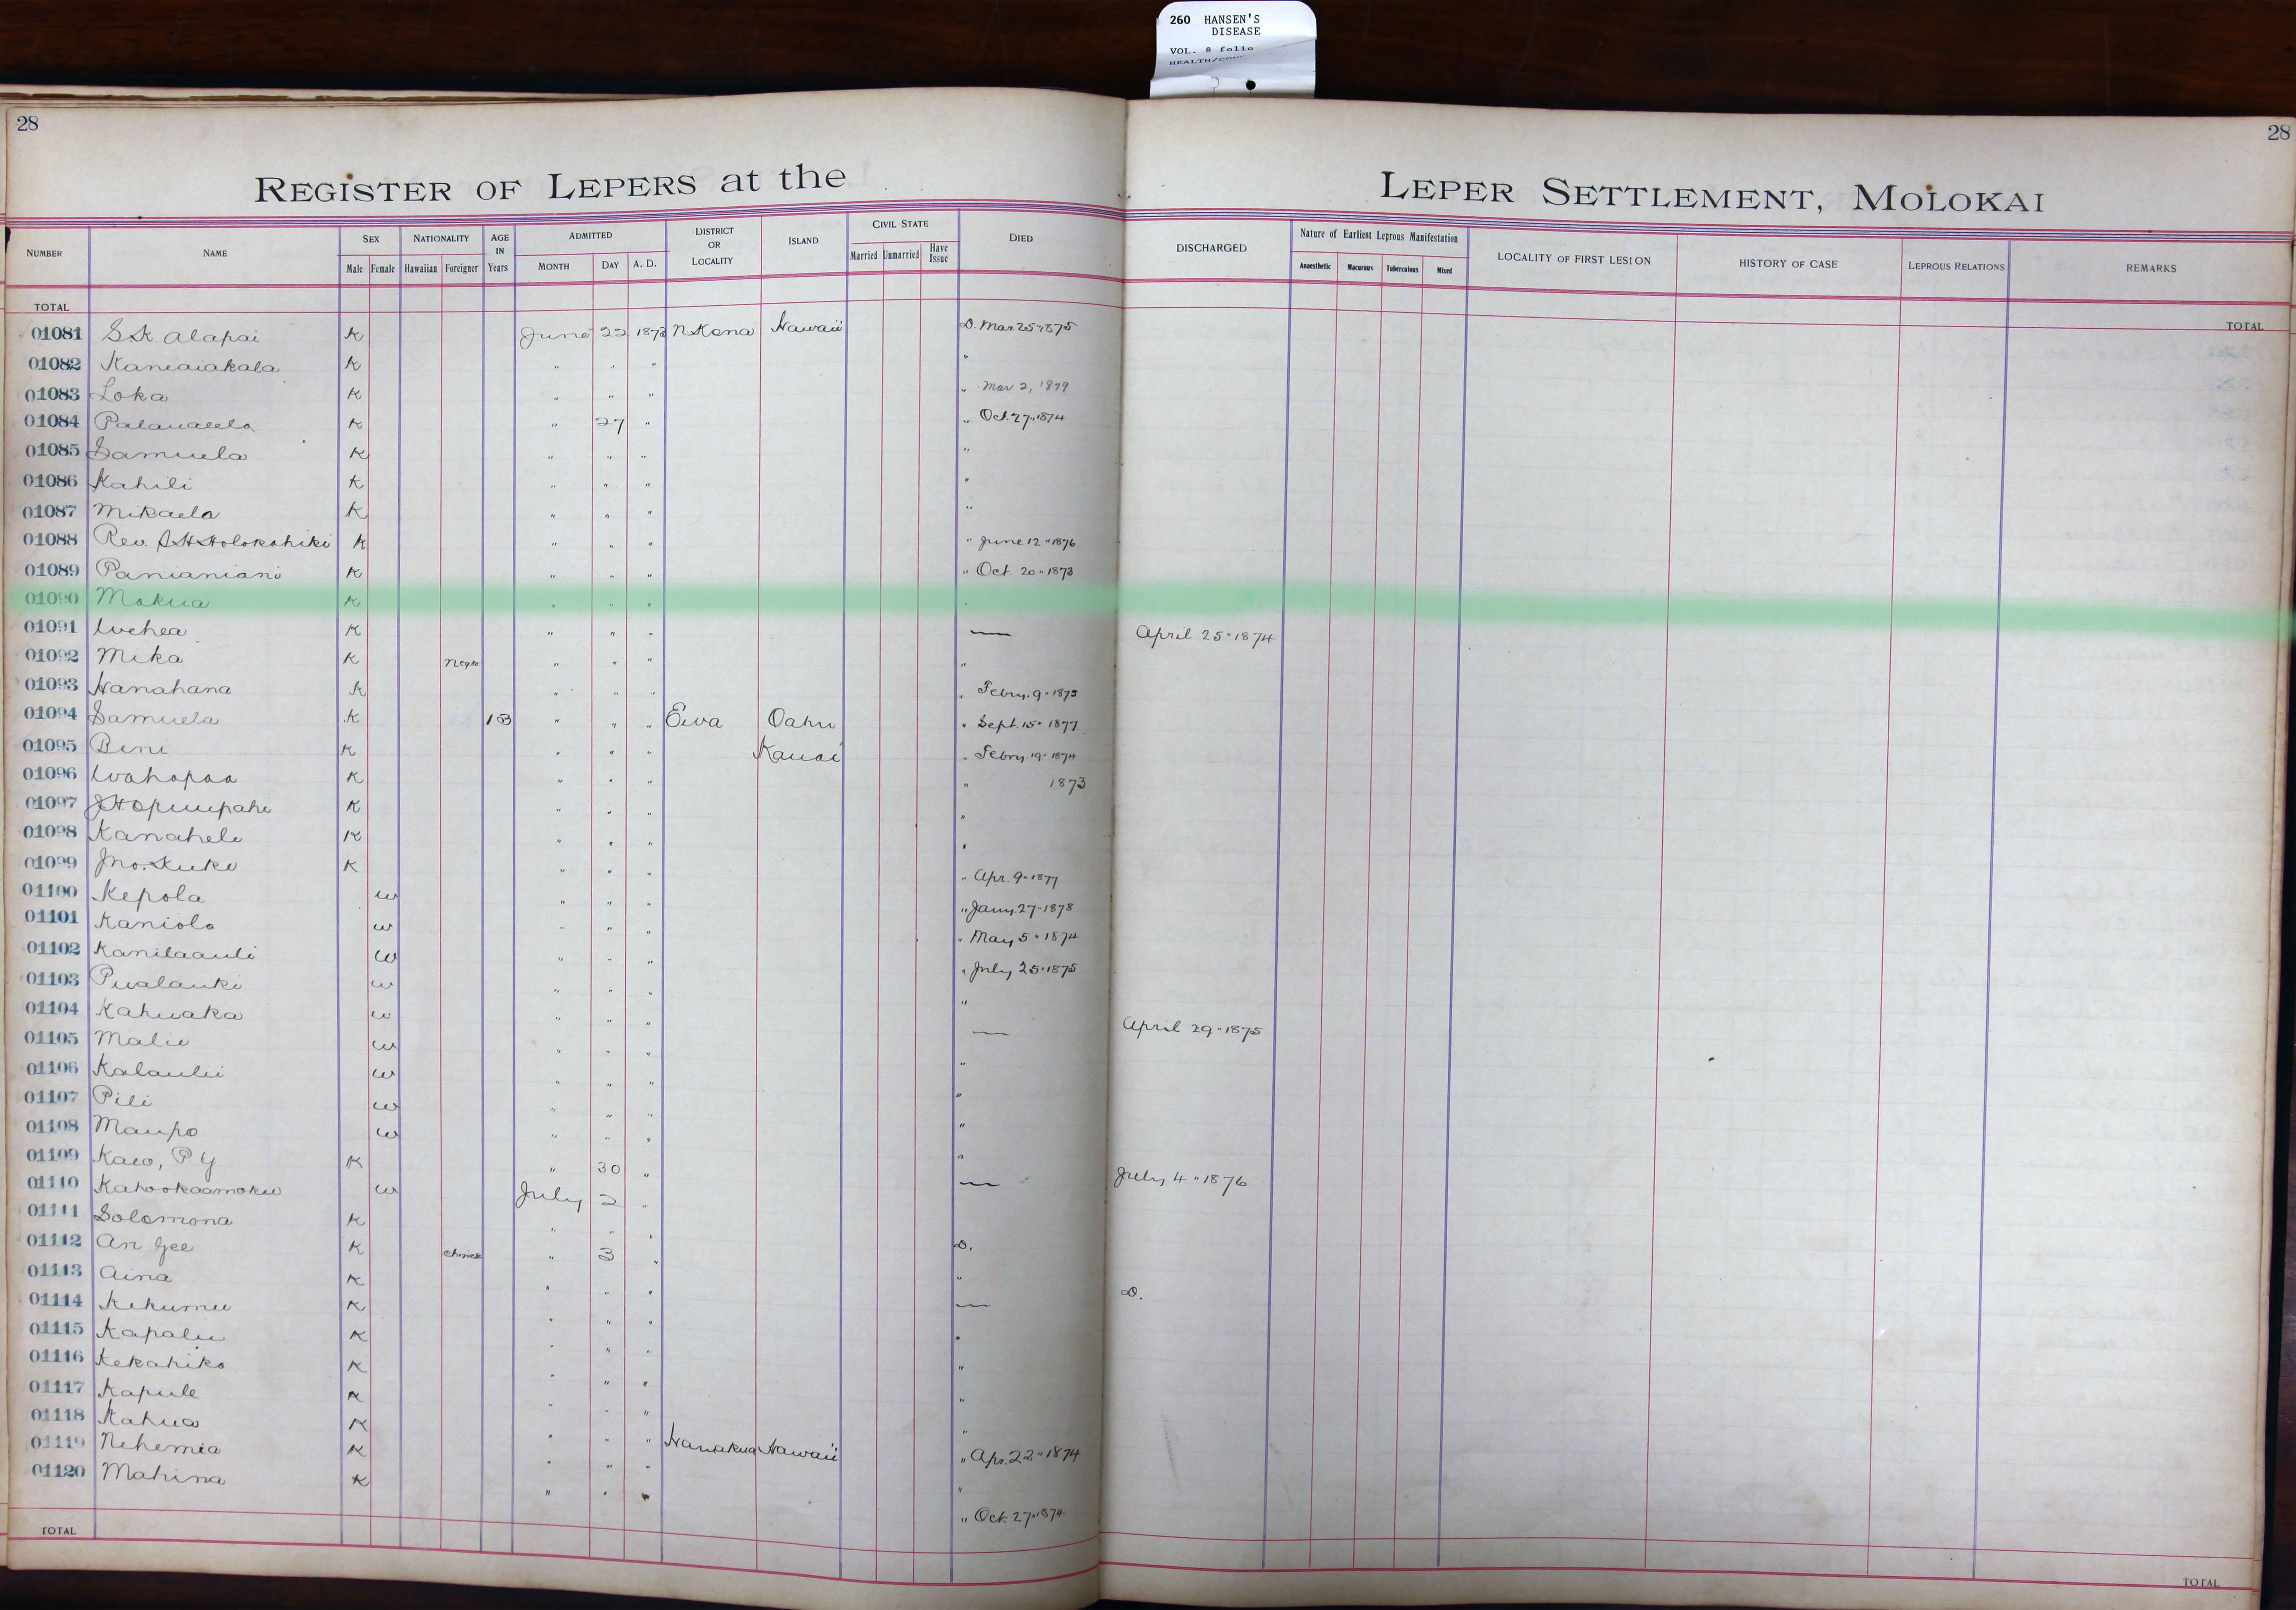 260 HANSEN'S
DISEASE
VOL. 8 folio
28
28
REGISTER OF LEPERS at the LEPER SETTLEMENT, MOLOKAI
NUMBER NAME SEX NATIONALITY AGE IN Years ADMITTED DISTRICT OR LOCALITY ISLAND CIVIL STATE DIED DISCHARGED Nature of Earliest Leprous Manifestation LOCALITY OF FIRST LESION HISTORY OF CASE LEPROUS RELATIONS REMARKS
Male Female Hawaiian Foreigner MONTH DAY A. D. Married Unmarried Have Issue Anaesthetic Macurous Tuberculous Mixed
TOTAL TOTAL
01081 S.K. Alapai K June 22 1873 N Kona Hawaii D. Mar. 25 " 1875
01082 Kaneaiakala K " " " "
01083 Loka K " " " " Mar 2, 1879
01084 K " 27 " " Oct. 27 " 1874
01085 Samuela K " " " "
01086 Kahili K " " " "
01087 Mikaela K " " " "
01088 Rev. Holokahiki K " " " " June 12 " 1876
01089 Panianiani K " " " " Oct. 20 " 1873
01090 Mokua K " " " "
01091 Wehea K " " " — April 25 " 1874
01092 Mika K Negro " " " "
01093 Hanahana K " " " " Febry. 9 "
01094 Samuela K 13 " " " Ewa Oahu " Sept. 15 " 1877
01095 Beni K " " " Kauai " Febry 19 " 1874
01096 Wahapaa K " " " " 1873
01097 K " " " "
01098 Kanahele K " " " "
01099 Jno. Kuke K " " " " Apr. 9 " 1877
01100 Kepola w " " " " Jany. 27 " 1878
01101 Kaniolo w " " " " May 5 " 1874
01102 Kanilaauli w " " " " July 25 " 1875
01103 Pualauki w " " " "
01104 Kahuaka w " " " — April 29 " 1875
01105 Malie w " " " "
01106 Kalaulii w " " " "
01107 Pili w " " " "
01108 Maupo w " " " "
01109 Kaeo, P Y K " 30 " — July 4 " 1876
01110 Kahookaamoku w July 2 "
01111 Solomona K " " " D.
01112 An Gee K Chinese " 3 " "
01113 Aina K " " " — D.
01114 Kekumu K " " " "
01115 Kapalu K " " " "
01116 Kekahiko K " " " "
01117 Kapule K " " " "
01118 Kahua K " " " Hamakua Hawaii " Apr. 22 " 1874
01119 Nehemia K " " " "
01120 Mahina K " " " " Oct. 27 " 1874
TOTAL TOTAL